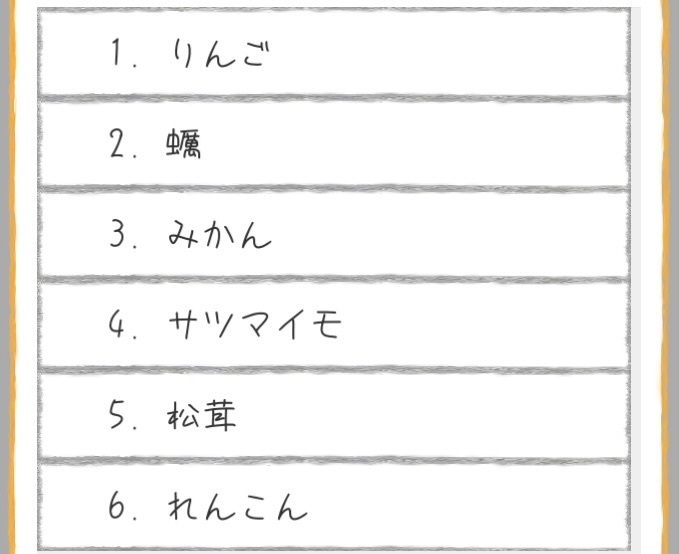 1. りんご
2. 蠣
3. みかん
4. サツマイモ
5. 松茸
6. れんこん